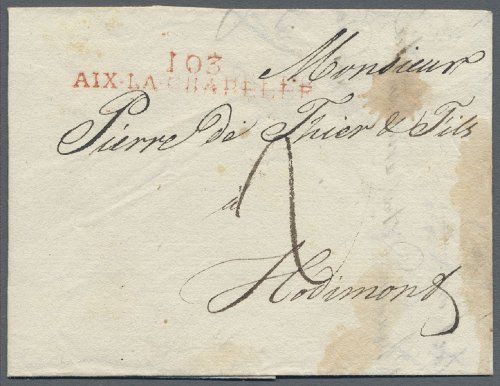 103
AIX·LA·CHAPELLE
Monsieur
Pierre De Thier & Fils
à
Hodimont